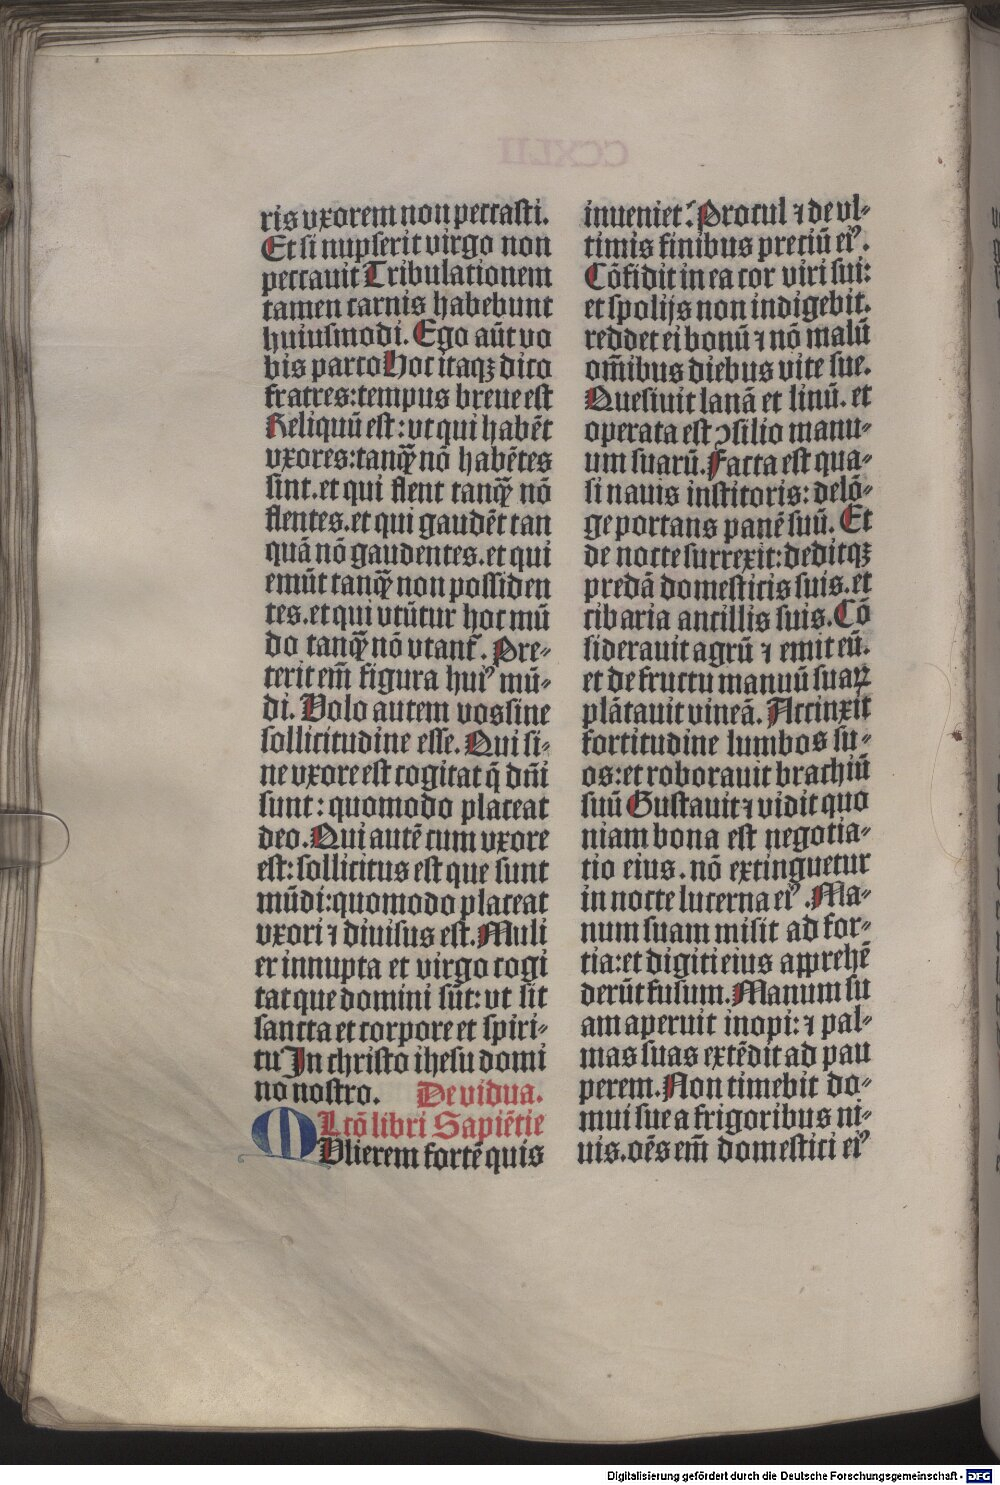 ris vxorem non peccasti.
Et si nupserit virgo non
peccauit Tribulationem
tamen carnis habebunt
huiusmodi. Ego aūt vo
bis parco Hoc itaqꝫ dico
fratres: tempus breue est
Reliquū est: vt qui habēt
vxores: tanqꝫ̄ nō habētes
sint. et qui flent tanqꝫ̄ nō
flentes. et qui gaudēt tan
quā nō gaudentes. et qui
emūt tanqꝫ̄ non possiden
tes. et qui vtūtur hoc mū
do tanqꝫ̄ nō vtant᷑. Pre⸗
terit em̄ figura huiꝰ mū⸗
di. Volo autem vos sine
sollicitudine esse. Qui si⸗
ne vxore est cogitat q̄ dn̄i
sunt: quomodo placeat
deo. Qui autē cum vxore
est: sollicitus est que sunt
mūdi: quomodo placeat
vxori ⁊ diuisus est. Muli
er innupta et virgo cogi
tat que domini sūt: vt sit
sancta et corpore et spiri⸗
tu In christo ihesu domi
no nostro. De vidua.
Lcō libri Sapiētie
MVlierem fortē quis
inueniet: Procul ⁊ de vl⸗
timis finibus preciū eiꝰ.
Cōfidit in ea cor viri sui:
et spolijs non indigebit.
reddet ei bonū ⁊ nō malū
om̄ibus diebus vite sue.
Quesiuit lanā et linū. et
operata est ↄsilio manu⸗
um suarū. Facta est qua⸗
si nauis institoris: de lō⸗
ge portans panē suū. Et
de nocte surrexit: deditqꝫ
predā domesticis suis. et
cibaria ancillis suis. Cō
siderauit agrū ⁊ emit eū.
et de fructu manuū suaꝝ
plātauit vineā. Accinxit
fortitudine lumbos su⸗
os: et roborauit brachiū
suū Gustauit ⁊ vidit quo
niam bona est negotia⸗
tio eius. nō extinguetur
in nocte lucerna eiꝰ. Ma⸗
num suam misit ad for⸗
tia: et digiti eius apprehē
derūt fusum. Manum su
am aperuit inopi: ⁊ pal⸗
mas suas extēdit ad pau
perem. Non timebit do⸗
mui sue a frigoribus ni⸗
uis. oēs em̄ domestici eiꝰ
Digitalisierung gefördert durch die Deutsche Forschungsgemeinschaft - DFG